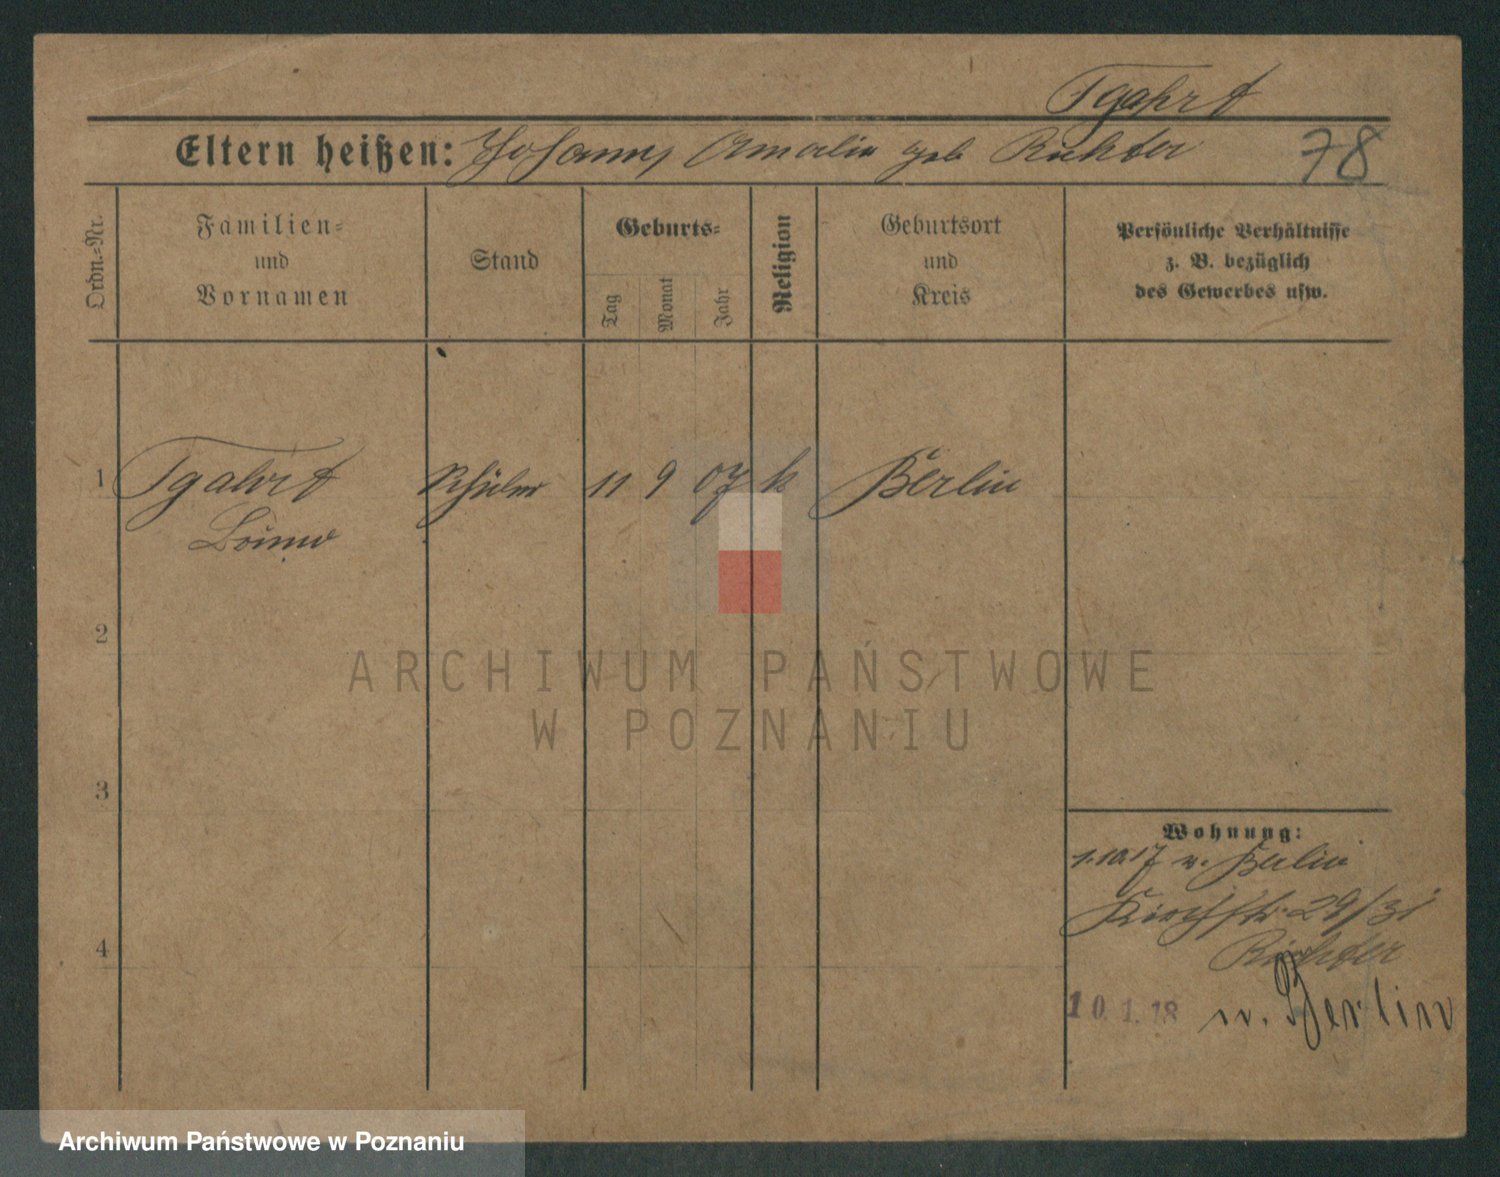 Tgahrt
Eltern heißen: Johann, Amalie geb Richter 78
Ordn.-Nr.
Familien=
und
Vornamen
Stand
Geburts=
Tag
Monat
Jahr
Religion
Geburtsort
und
Kreis
Persönliche Verhältnisse
z. B. bezüglich
des Gewerbes usw.
1 Tgahrt Schüler 11 9 07 k Berlin
2
ARCHIWUM PAŃSTWOWE
W POZNANIU
3
Wohnung:
1.10.17 v. Berlin
Kirchstr. 29/31
4 Richter
10.1.18 n. Berlin
Archiwum Państwowe w Poznaniu